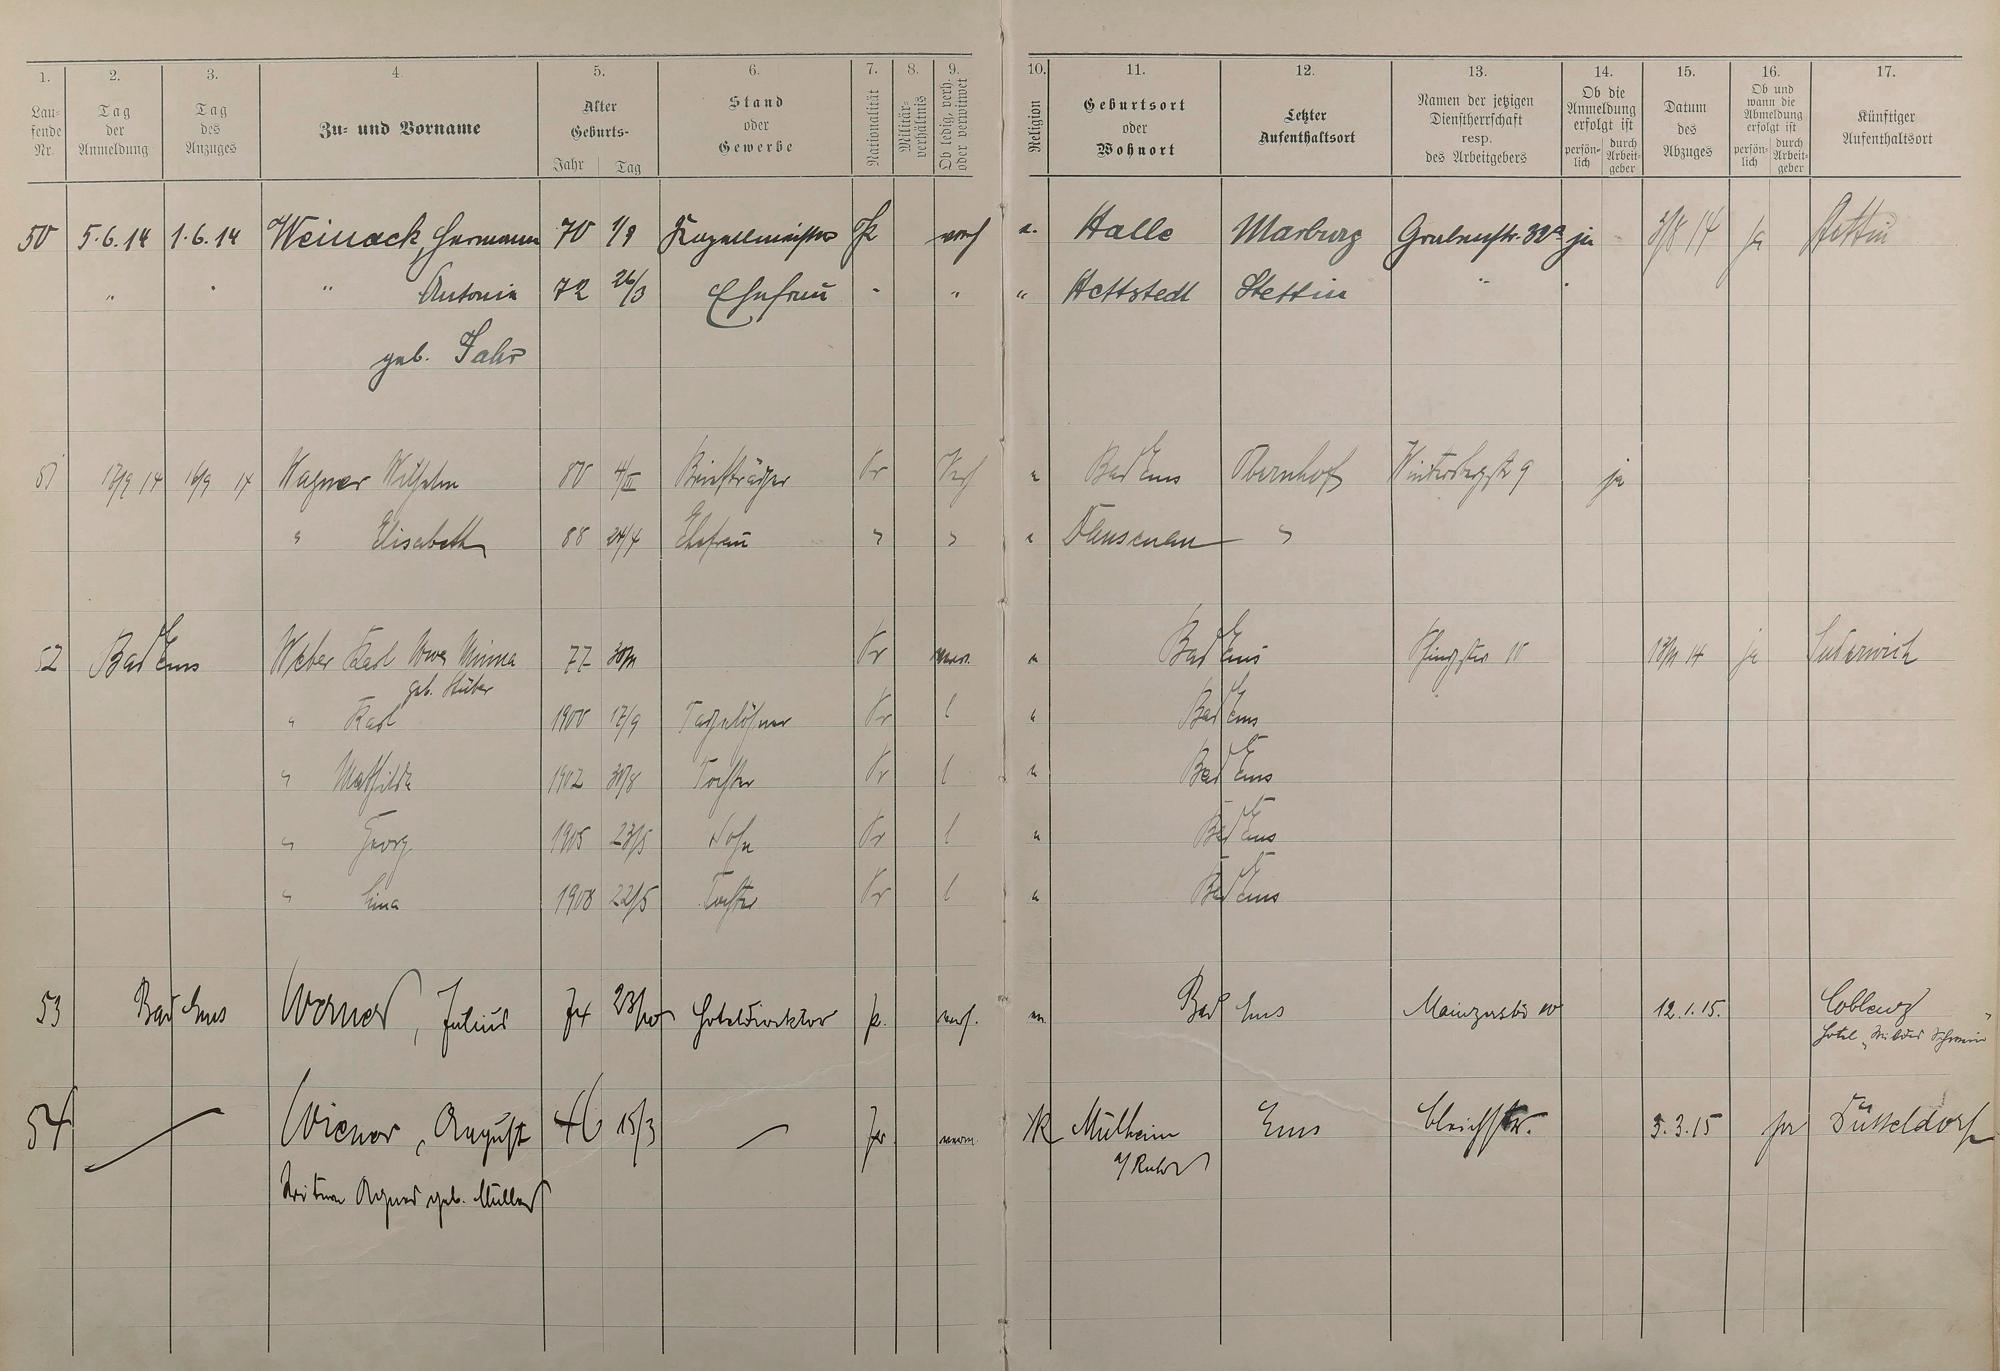 1. 2. 3. 4. 5. 6. 7. 8. 9. 10. 11. 12. 13. 14. 15. 16. 17.
Lau-
fende
Nr.
Tag
der
Anmeldung
Tag
des
Anzuges
Zu- und Vorname
Alter
Geburts-
Jahr Tag
Stand
oder
Gewerbe
Nationalität
Militär-
verhältnis
Ob ledig, verh.
oder verwitwet
Religion
Geburtsort
oder
Wohnort
Letzter
Aufenthaltsort
Namen der jetzigen
Dienstherrschaft
resp.
des Arbeitgebers
Ob die
Anmeldung
erfolgt ist
persön-
lich
durch
Arbeit-
geber
Datum
des
Abzuges
Ob und
wann die
Abmeldung
erfolgt ist
persön-
lich
durch
Arbeit-
geber
Künftiger
Aufenthaltsort
50 5.6.14 1.6.14 Weinack, Hermann 70 1/9 Kapellmeister Pr verh e. Halle Marburg Grabenstr. 32a ja 3/8 14 ja Stettin
" " " Antonie 72 26/3 Ehefrau " " " Hettstedt Stettin "
geb. Jahr
51 17/9 14 16/9 14 Wagner Wilhelm 80 4/II Briefträger Pr Verh e Bad Ems Obernhof Wintersbergstr 9 ja
" Elisabeth 88 24/4 Ehefrau " " e Dausenau "
52 Bad Ems Weber Karl Wwe Minna 77 Pr e Bad Ems 13/11 14 ja Suderwich
geb. Stüber
" Karl 1900 17/9 Tagelöhner Pr l e Bad Ems
" Mathilde 1902 30/8 Tochter Pr l e Bad Ems
" Georg 1905 23/5 Sohn Pr l e Bad Ems
" Lina 1908 22/5 Tochter Pr l e Bad Ems
53 Bad Ems Werner, Julius 74 23/10 Hoteldirektor p. verh. Bad Ems Mainzerstr 12.1.15. Coblenz
Hotel „Wilder Schwein"
54 — Wiener, August 46 15/3 — Pr K Mülheim Ems Bleichstr. 3.3.15 ja Düsseldorf
a/Ruhr
Witwe Agnes geb. Müller